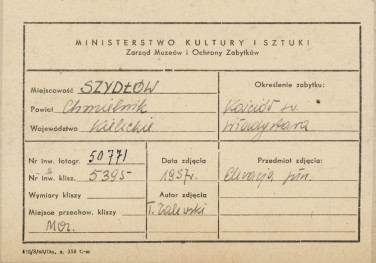 MINISTERSTWO KULTURY I SZTUKI
Zarząd Muzeów i Ochrony Zabytków
Miejscowość SZYDŁÓW
Powiat Chmielnik
Województwo Kieleckie
Określenie zabytku:
Kościół św.
Władysława
Nr inw. fotogr. 50771
Nr inw. klisz. 5395
Wymiary kliszy
Miejsce przechow. kliszy
Data zdjęcia
1957r.
Autor zdjęcia
T. Zalewski
Przedmiot zdjęcia:
Elewacja płn.